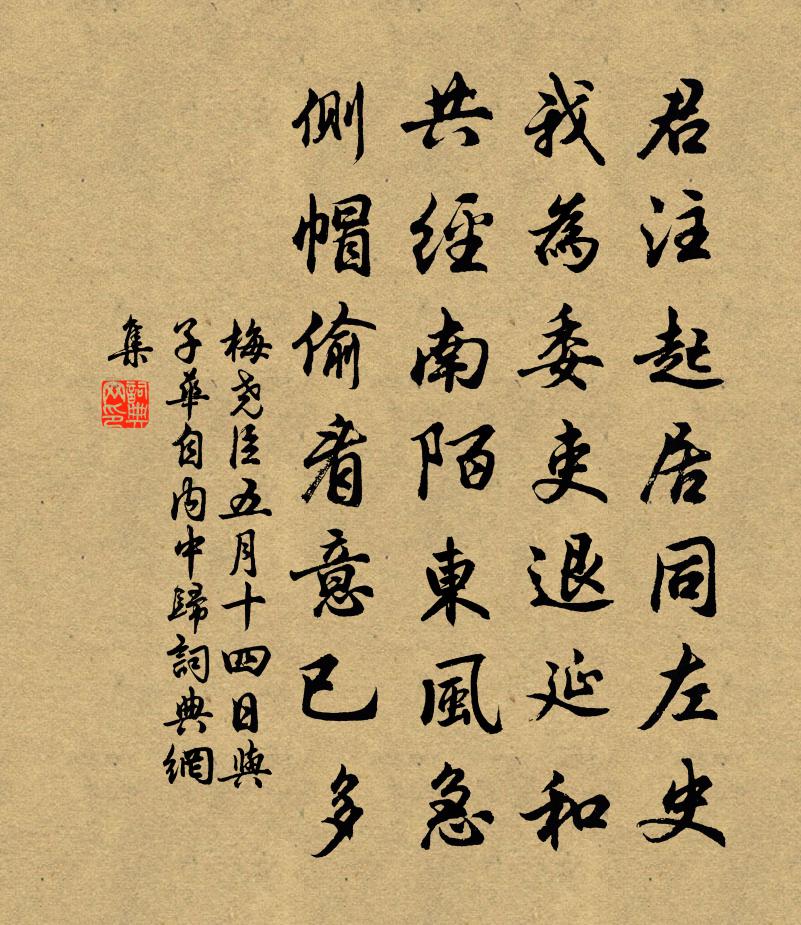 君注起居同左史
我為委吏退延和
共經南陌東風急
側帽偷看意已多
梅堯臣五月十四日與
子華自內中歸詞典網
集
詞典
網印